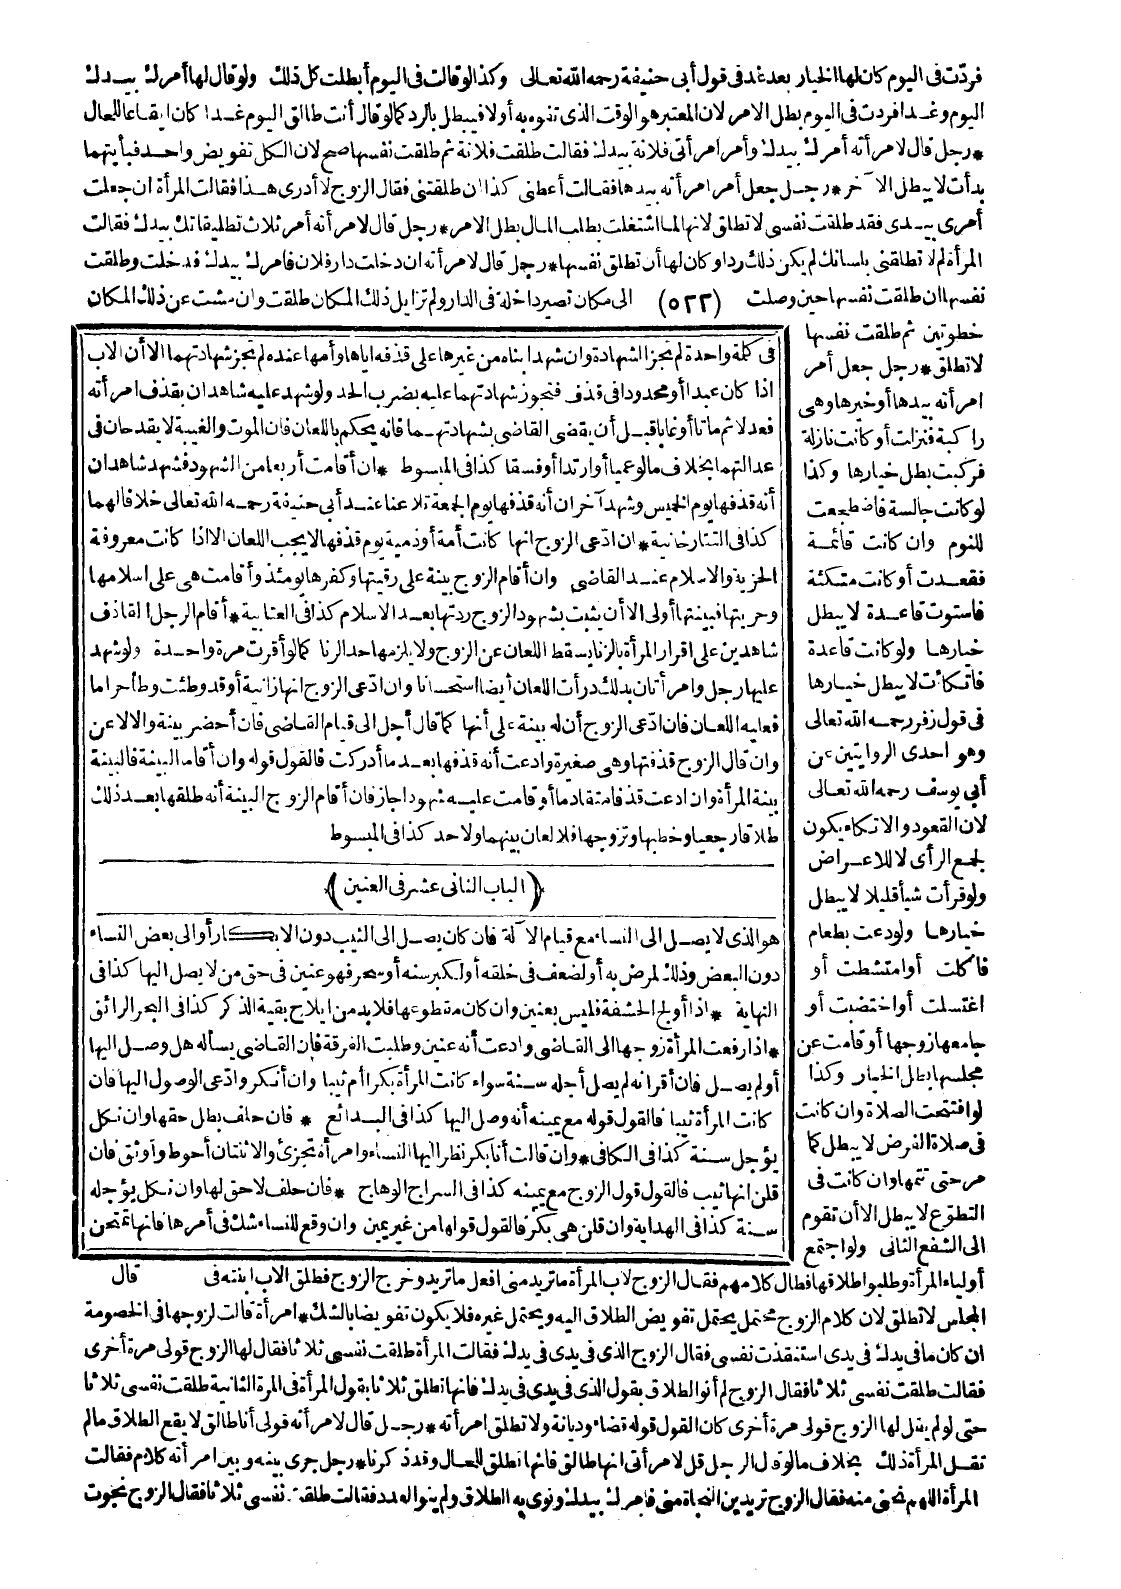 فردّت فى اليوم كان لها الخيار بعد غد فى قول أبى حنيفة رحمه الله تعالى وكذا لو قالت فى اليوم أبطلت كل ذلك ولو قال لها أمرك بيدك
اليوم وغدا فردت فى اليوم بطل الامر لان المعتبر هو الوقت الذى تفوه به أولا فيبطل بالرد كما لو قال أنت طالق اليوم غدا كان ايقاعا للحال
* رجل قال لامرأته أمرك بيدك وأمر امرأتى فلانة بيدك فقالت طلقت فلانة ثم طلقت نفسها صح لان الكل تفويض واحد فبأيتهما
بدأت لا يبطل الآخر * رجل جعل أمر امرأته بيدها فقالت أعطنى كذا ان طلقتنى فقال الزوج لا أدرى هذا فقالت المرأة ان جعلت
أمرى بيدى فقد طلقت نفسى لا تطلق لانها لما اشتغلت بطلب المال بطل الامر * رجل قال لامرأته أمر ثلاث تطليقاتك بيدك فقالت
المرأة لم لا تطلقنى بلسانك لم يكن ذلك ردا وكان لها أن تطلق نفسها * رجل قال لامرأته ان دخلت دار فلان فامرك بيدك فدخلت وطلقت
نفسها ان طلقت نفسها حين وصلت (٥٢٢) الى مكان تصير داخلة فى الدار ولم تزايل ذلك المكان طلقت وان مشت عن ذلك المكان
خطوتين ثم طلقت نفسها
لا تطلق * رجل جعل أمر
امرأته بيدها أو خيرها وهى
راكبة فنزلت أو كانت نازلة
فركبت بطل خيارها وكذا
لو كانت جالسة فاضطجعت
للنوم وان كانت قائمة
فقعدت أو كانت متكئة
فاستوت قاعدة لا يبطل
خيارها ولو كانت قاعدة
فاتكأت لا يبطل خيارها
فى قول زفر رحمه الله تعالى
وهو احدى الروايتين عن
أبى يوسف رحمه الله تعالى
لان القعود والاتكاء يكون
لجمع الرأى لا للاعراض
ولو قرأت شيأ قليلا لا يبطل
خيارها ولو دعت بطعام
فأكلت أو امتشطت أو
اغتسلت أو اختضبت أو
جامعها زوجها أو قامت عن
مجلسها بطل الخيار وكذا
لو افتتحت الصلاة وان كانت
فى صلاة الفرض لا يبطل كما
مر حتى تتمها وان كانت فى
التطوّع لا يبطل الا أن تقوم
الى الشفع الثانى ولو اجتمع
فى كلمة واحدة لم تجز الشهادة وان شهد ابناه من غيرها على قذفه اياها وأمها عنده لم تجز شهادتهما الا أن الاب
اذا كان عبدا أو محدودا فى قذف فتجوز شهادتهما عليه بضرب الحد ولو شهد عليه شاهدان بقذف امرأته
فعدلا ثم ماتا أو غابا قبل أن يقضى القاضى بشهادتهما فانه يحكم باللعان فان الموت والغيبة لا يقدحان فى
عدالتهما بخلاف ما لو عميا أو ارتدا أو فسقا كذا فى المبسوط * ان أقامت أربعا من الشهود فشهد شاهدان
أنه قذفها يوم الخميس وشهد آخران أنه قذفها يوم الجمعة تلاعنا عند أبى حنيفة رحمه الله تعالى خلافا لهما
كذا فى التتارخانية * ان ادّعى الزوج انها كانت أمة أو ذمية يوم قذفها لا يجب اللعان الا اذا كانت معروفة
الحرية والاسلام عند القاضى وان أقام الزوج بينة على رقيتها وكفرها يومئذ وأقامت هى على اسلامها
وحريتها فبينتها أولى الا أن يثبت شهود الزوج ردتها بعد الاسلام كذا فى العتابية * أقام الرجل القاذف
شاهدين على اقرار المرأة بالزنا يسقط اللعان عن الزوج ولا يلزمها حد الزنا كما لو أقرت مرة واحدة ولو شهد
عليها رجل وامرأتان بذلك درأت اللعان أيضا استحسانا وان ادّعى الزوج انها زانية أو قد وطئت وطأ حراما
فعليه اللعان فان ادّعى الزوج أن له بينة على أنها كما قال أجل الى قيام القاضى فان أحضر بينة والا لاعن
وان قال الزوج قذفتها وهى صغيرة وادعت أنه قذفها بعد ما أدركت فالقول قوله وان أقاما البينة فالبينة
بينة المرأة وان ادعت قذفا متقادما وأقامت عليه شهودا جاز فان أقام الزوج البينة أنه طلقها بعد ذلك
طلاقا رجعيا وخطبها وتزوجها فلا لعان بينهما ولا حد كذا فى المبسوط
(الباب الثانى عشر فى العنين)
هو الذى لا يصل الى النساء مع قيام الآلة فان كان يصل الى الثيب دون الابكار أو الى بعض النساء
دون البعض وذلك لمرض به أو لضعف فى خلقه أو لكبر سنه أو سحر فهو عنين فى حق من لا يصل اليها كذا فى
النهاية * اذا أولج الحشفة فليس بعنين وان كان مقطوعها فلا بد من ايلاج بقية الذكر كذا فى البحر الرائق
* اذا رفعت المرأة زوجها الى القاضى وادعت أنه عنين وطلبت الفرقة فان القاضى يسأله هل وصل اليها
أو لم يصل فان أقر انه لم يصل أجله سنة سواء كانت المرأة بكرا أم ثيبا وان أنكر وادّعى الوصول اليها فان
كانت المرأة ثيبا فالقول قوله مع يمينه أنه وصل اليها كذا فى البدائع * فان حلف بطل حقها وان نكل
يؤجل سنة كذا فى الكافى * وان قالت أنا بكر نظر اليها النساء وامرأة تجزئ والاثنتان أحوط وأوثق فان
قلن انها ثيب فالقول قول الزوج مع يمينه كذا فى السراج الوهاج * فان حلف لا حق لها وان نكل يؤجله
سنة كذا فى الهداية وان قلن هى بكر فالقول قولها من غير يمين وان وقع للنساء شك فى أمرها فانها تمتحن
أولياء المرأة وطلبوا طلاقها فطال كلامهم فقال الزوج لاب المرأة ما تريد منى افعل ما تريد وخرج الزوج فطلق الاب ابنته فى قال
المجلس لا تطلق لان كلام الزوج محتمل يحتمل تفويض الطلاق اليه ويحتمل غيره فلا يكون تفويضا بالشك * امرأة قالت لزوجها فى الخصومة
ان كان ما فى يدك فى يدى استنقذت نفسى فقال الزوج الذى فى يدى فى يدك فقالت المرأة طلقت نفسى ثلاثا فقال لها الزوج قولى مرة أخرى
فقالت طلقت نفسى ثلاثا فقال الزوج لم أنو الطلاق بقول الذى فى يدى فى يدك فانها تطلق ثلاثا بقول المرأة فى المرة الثانية طلقت نفسى ثلاثا
حتى لو لم يقل لها الزوج قولى مرة أخرى كان القول قوله قضاء وديانة ولا تطلق امرأته * رجل قال لامرأته قولى أنا طالق لا يقع الطلاق ما لم
تقل المرأة ذلك بخلاف ما لو قال الرجل قل لامرأتى انها طالق فانها تطلق للحال وقد ذكرنا * رجل جرى بينه وبين امرأته كلام فقالت
المرأة اللهم نجنى منه فقال الزوج تريدين النجاة منى فأمرك بيدك ونوى به الطلاق ولم ينو العدد فقالت طلقت نفسى ثلاثا فقال الزوج نجوت